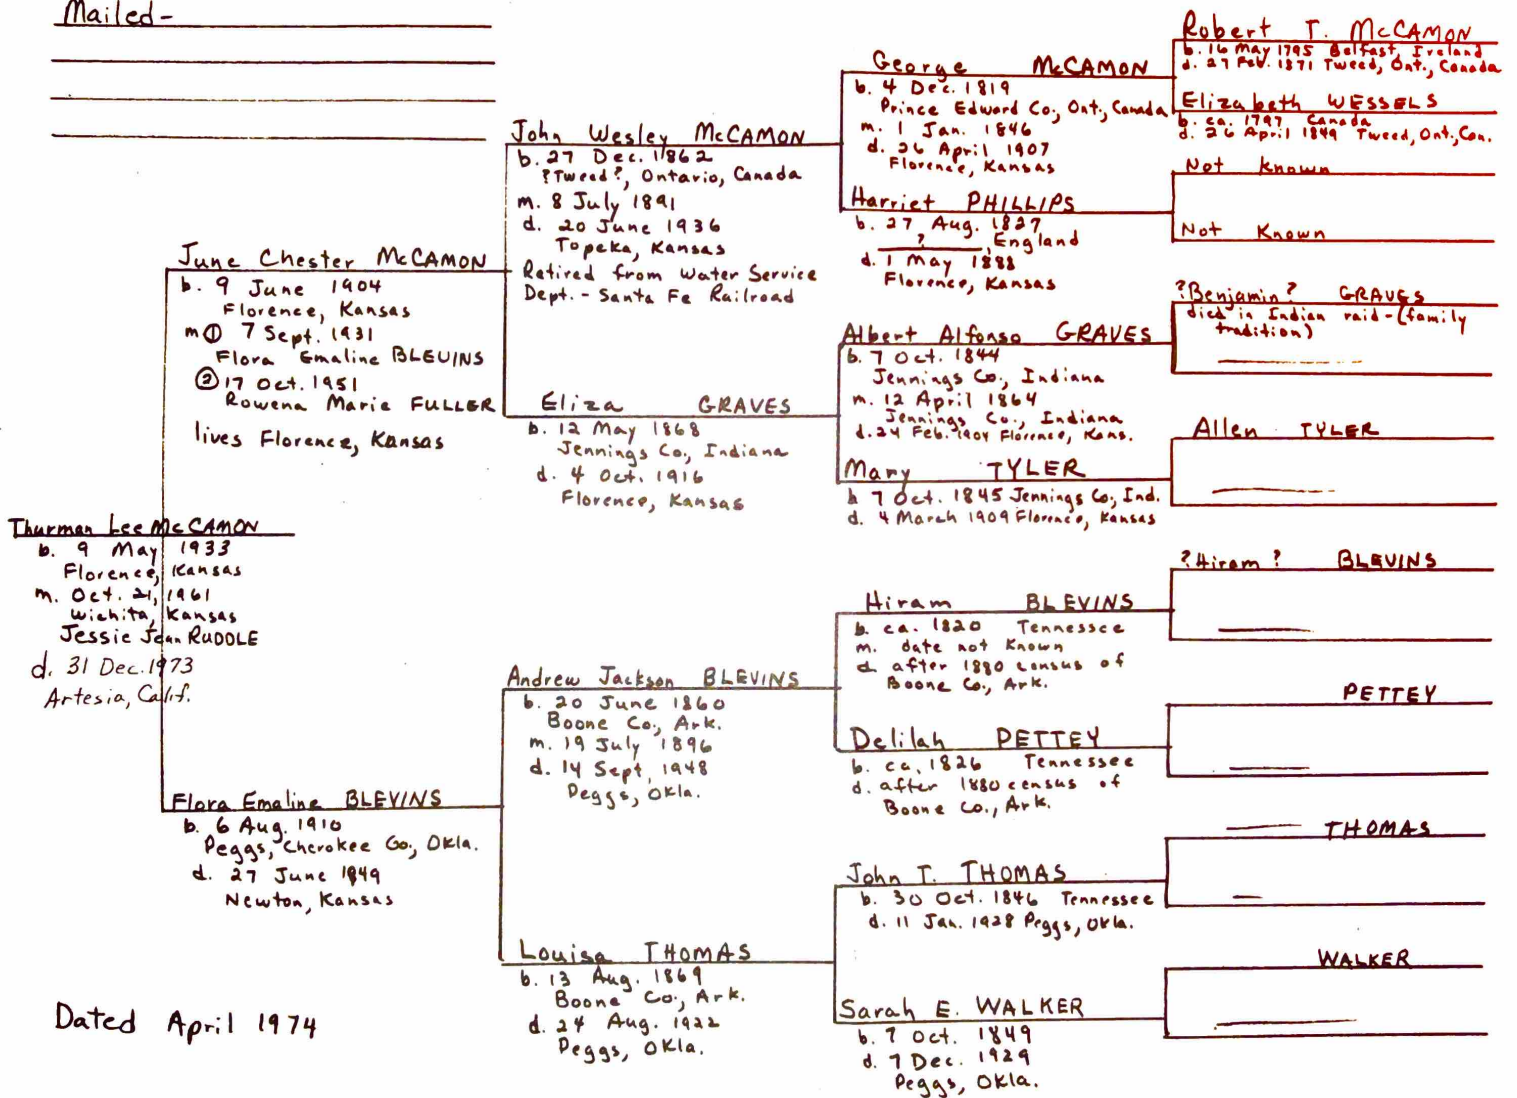 Mailed-
Thurman Lee McCAMON
b. 9 May 1933
Florence, Kansas
m. Oct. 21, 1961
Wichita, Kansas
Jessie Jean RUDDLE
d. 31 Dec. 1973
Artesia, Calif.
June Chester McCAMON
b. 9 June 1904
Florence, Kansas
m ① 7 Sept. 1931
Flora Emaline BLEVINS
② 17 Oct. 1951
Rowena Marie FULLER
lives Florence, Kansas
Flora Emaline BLEVINS
b. 6 Aug. 1910
Peggs, Cherokee Co., Okla.
d. 27 June 1949
Newton, Kansas
John Wesley McCAMON
b. 27 Dec. 1862
?Tweed?, Ontario, Canada
m. 8 July 1891
d. 20 June 1936
Topeka, Kansas
Retired from Water Service
Dept. - Santa Fe Railroad
Eliza GRAVES
b. 12 May 1868
Jennings Co., Indiana
d. 4 Oct. 1916
Florence, Kansas
Andrew Jackson BLEVINS
b. 20 June 1860
Boone Co., Ark.
m. 19 July 1896
d. 14 Sept. 1948
Peggs, Okla.
Louisa THOMAS
b. 13 Aug. 1869
Boone Co., Ark.
d. 24 Aug. 1922
Peggs, Okla.
George McCAMON
b. 4 Dec. 1819
Prince Edward Co., Ont., Canada
m. 1 Jan. 1846
d. 26 April 1907
Florence, Kansas
Harriet PHILLIPS
b. 27 Aug. 1827
?, England
d. 1 May 1888
Florence, Kansas
Albert Alfonso GRAVES
b. 7 Oct. 1844
Jennings Co., Indiana
m. 12 April 1864
Jennings Co., Indiana
d. 24 Feb. 1904 Florence, Kans.
Mary TYLER
b 7 Oct. 1845 Jennings Co., Ind.
d. 4 March 1909 Florence, Kansas
Hiram BLEVINS
b. ca. 1820 Tennessee
m. date not known
d. after 1880 census of
Boone Co., Ark.
Delilah PETTEY
b. ca. 1826 Tennessee
d. after 1880 census of
Boone Co., Ark.
John T. THOMAS
b. 30 Oct. 1846 Tennessee
d. 11 Jan. 1928 Peggs, Okla.
Sarah E. WALKER
b. 7 Oct. 1849
d. 7 Dec. 1929
Peggs, Okla.
Robert T. McCAMON
b. 16 May 1795 Belfast, Ireland
d. 27 Feb. 1871 Tweed, Ont., Canada
Elizabeth WESSELS
b. ca. 1797 Canada
d. 26 April 1849 Tweed, Ont., Can.
Not known
Not Known
?Benjamin? GRAVES
died in Indian raid - (family
tradition)
Allen TYLER
?Hiram? BLEVINS
PETTEY
THOMAS
WALKER
Dated April 1974